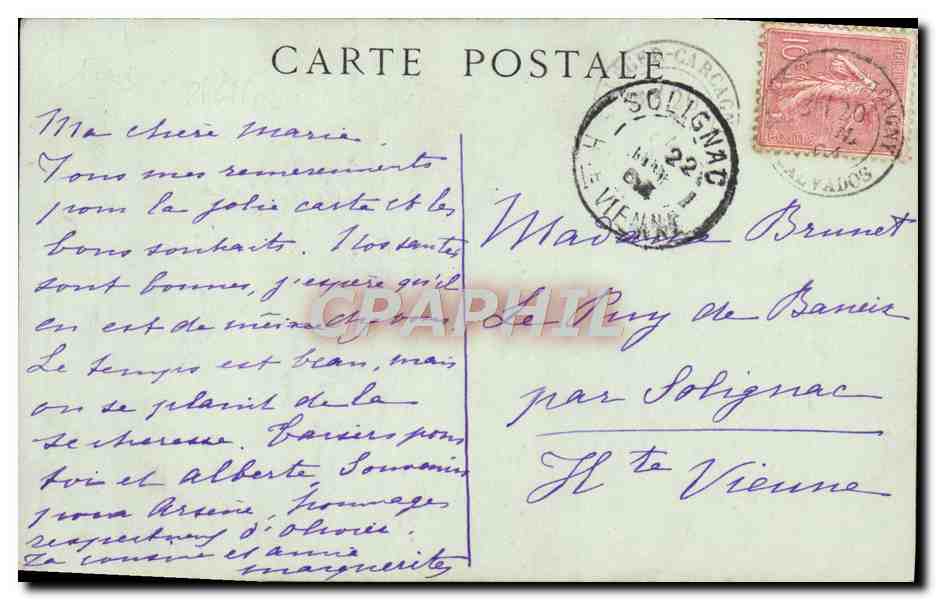 CARTE POSTALE
10
CAGNY
CALVADOS
SOLIGNAC
22
Hte VIENNE
Ma chère Marie
Tous mes remerciements
pour la jolie carte et les
bons souhaits. Nos santés
sont bonnes, j'espère qu'il
en est de même chez vous
Le temps est beau, mais
on se plaint de la
sécheresse. Baisers pour
toi et Alberte, Souvenirs
pour Arsène, hommages
respectueux d'
Ta cousine et amie
Marguerite
Madame Brunet
Le Puy de
par Solignac
Hte Vienne
CPAPHIL